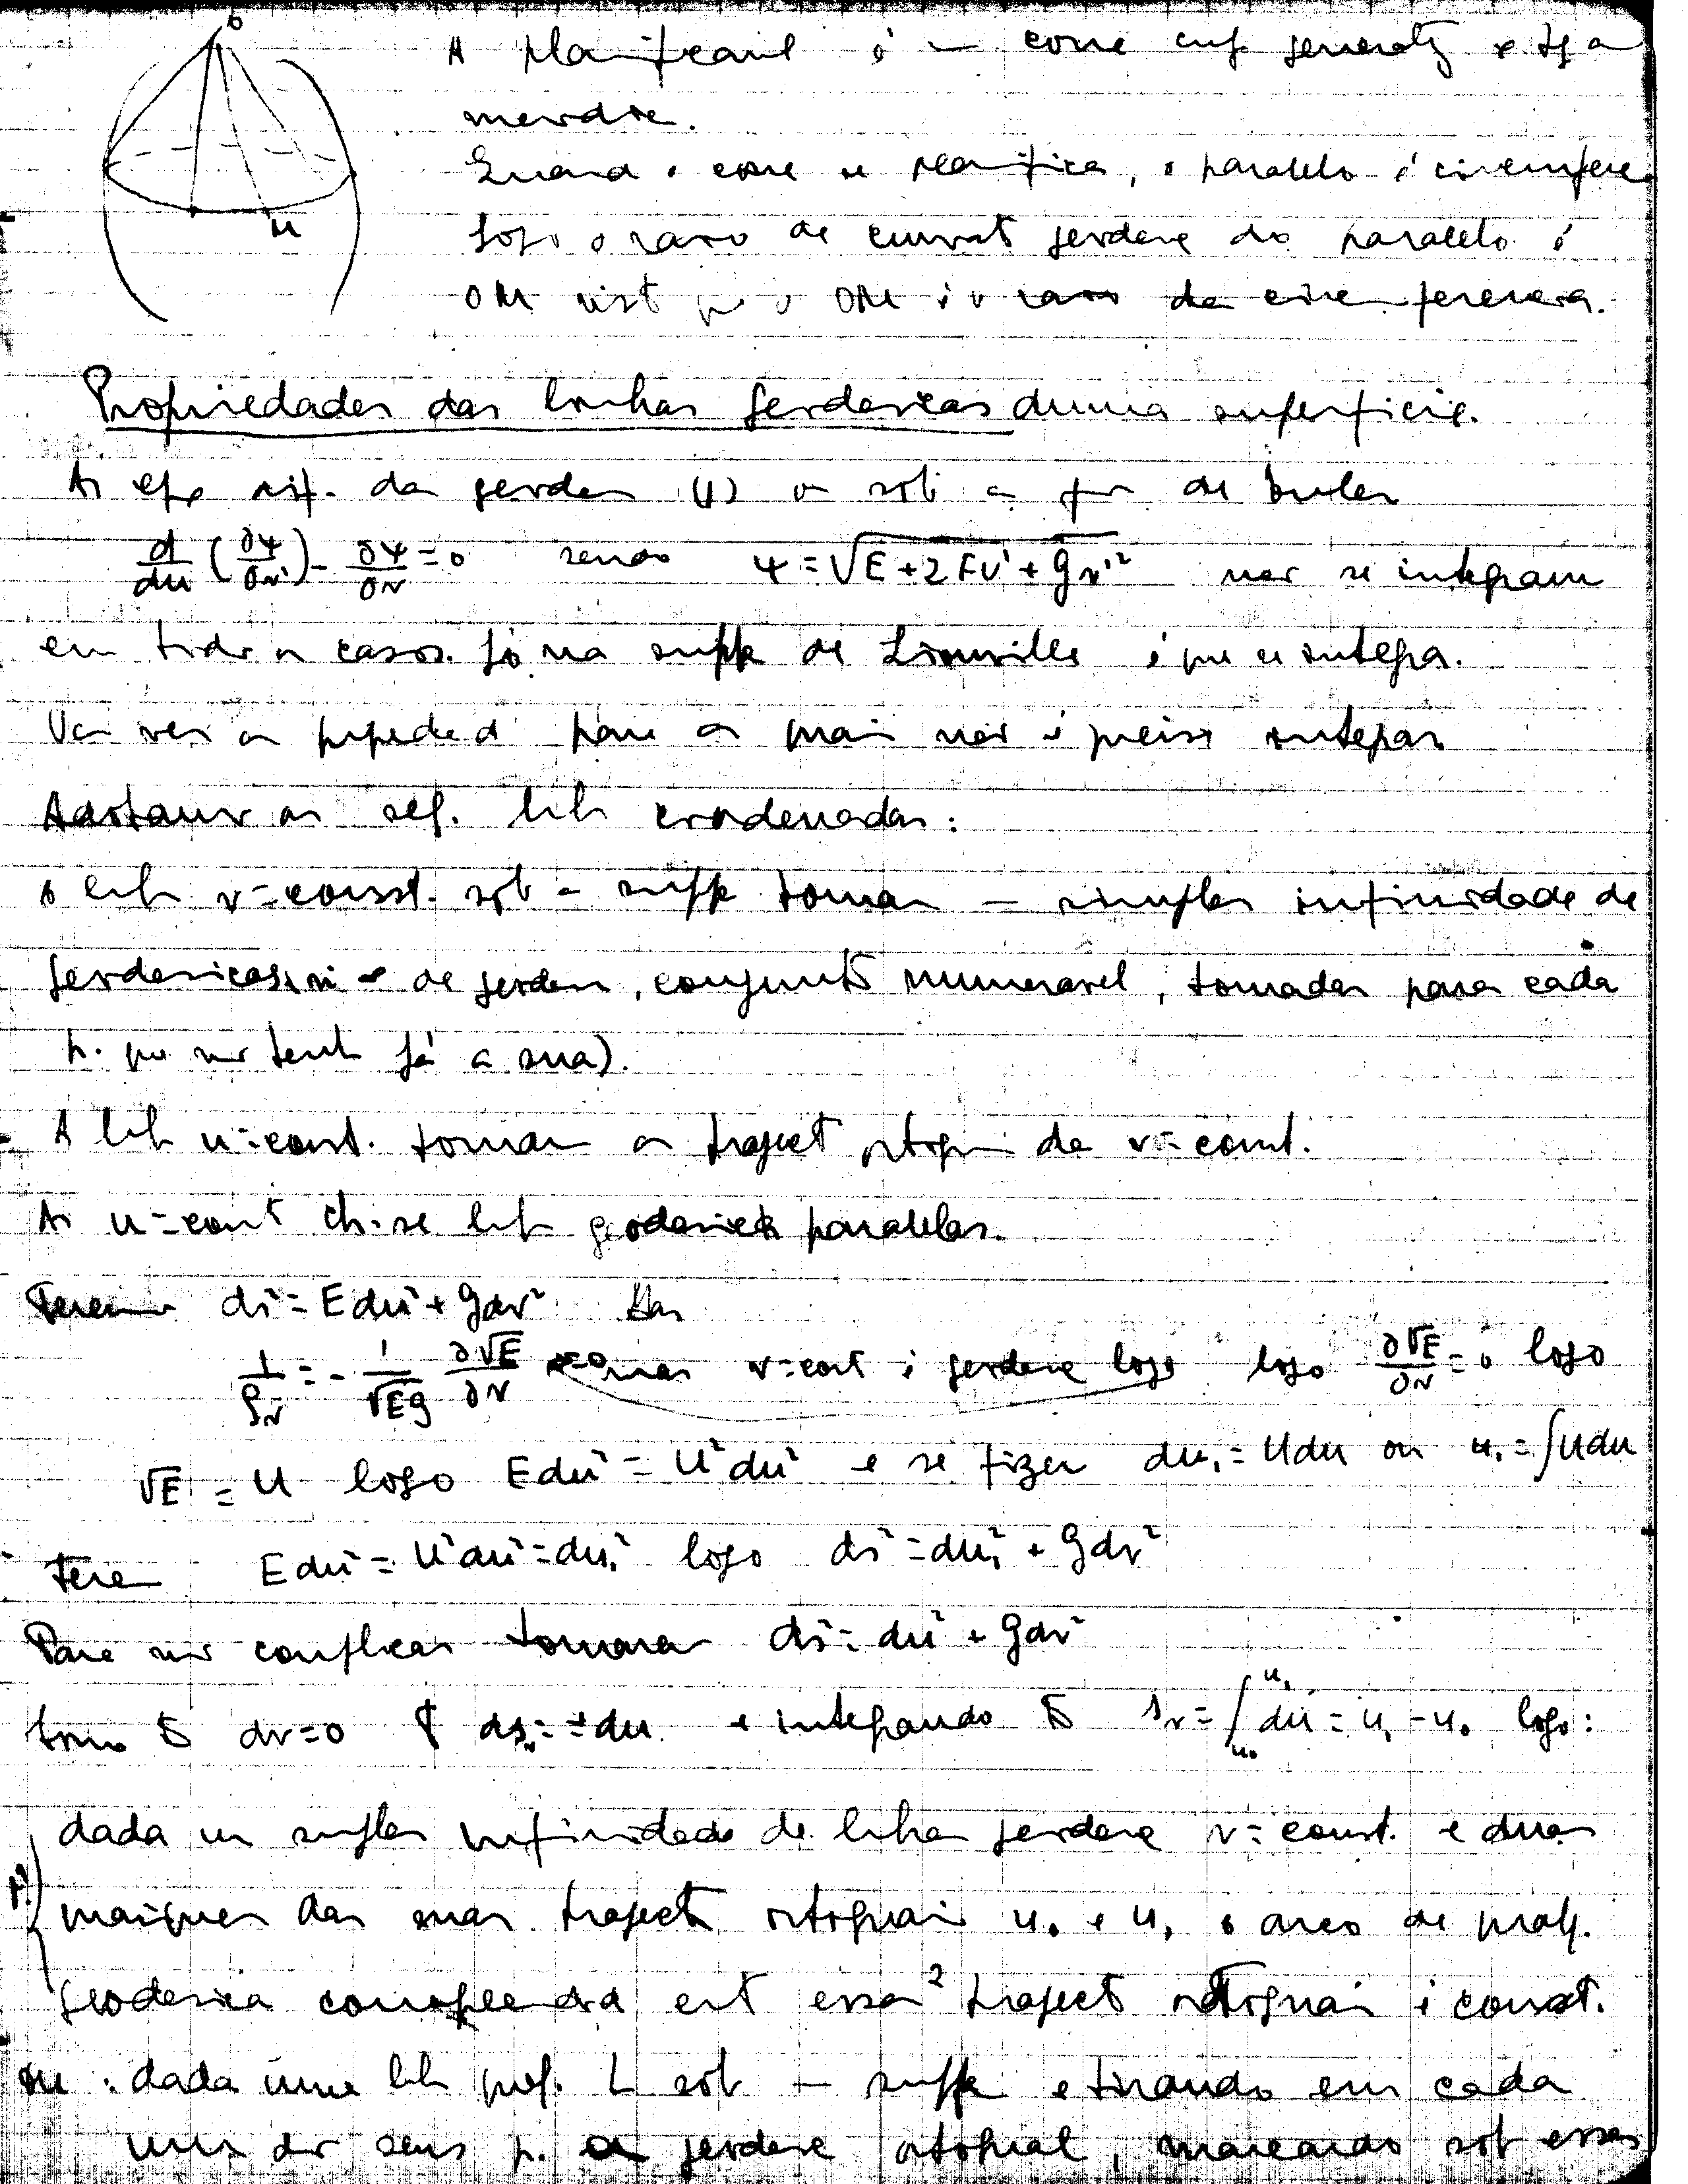 O
M
A planificavel é – cone cuj generatz e tg a
meridne.
Quand o cone se planifica, o paralelo é circumfere
logo o raio de curvat geodene do paralelo é
OM vist q o OM é o raio da circumferencia.
Propriedades das linhas geodesicas duma superficie.
As eqs dif. da geodes (1) sob a fr de Euler
d/du (∂ψ/∂v') - ∂ψ/∂v = 0 sendo ψ = √(E + 2Fv' + Gv'²) não se integram
em todos os casos. Só na supf de Liouville é que se integra.
Va ver as propriedad para as quais não é preciso integrar
Adotamos as seg. linh coordenadas:
a linh v = const. sob a supf tomar – simples infinidade de
geodesicas, de geodes, conjunto numeravel, tomadas para cada
p. que não tenh já a sua).
A linh u = const. tomar as traject ortogon de v = const.
As u = const ch-se linh geodesicas paralelas.
Teremos ds² = Edu² + Gdv² Mas
1/ρv = - 1/√EG ∂√E/∂v mas v = const é geodene logo logo ∂√E/∂v = 0 logo
√E = U logo Edu² = U²du² e se fizer du₁ = Udu ou u₁ = ∫Udu
tere Edu² = U²du² = du₁² logo ds² = du₁² + Gdv²
Para não complicar tomarem ds² = du² + Gdv²
dv = 0 dsv = ±du e integrando sv = ∫u₀^u₁ du = u₁ - u₀ logo:
dada um simples infinidade de linhas geodene v = const. e duas
quaisquer das suas traject ortogonais u₀ e u₁ o arco de qualq.
geodesica compreendida ent essas 2 traject ortogonais é const.
ou : dada uma linh qualq. L sob – supf e tirando em cada
um dos seus p. a geodene ortogonal, marcando sob essas